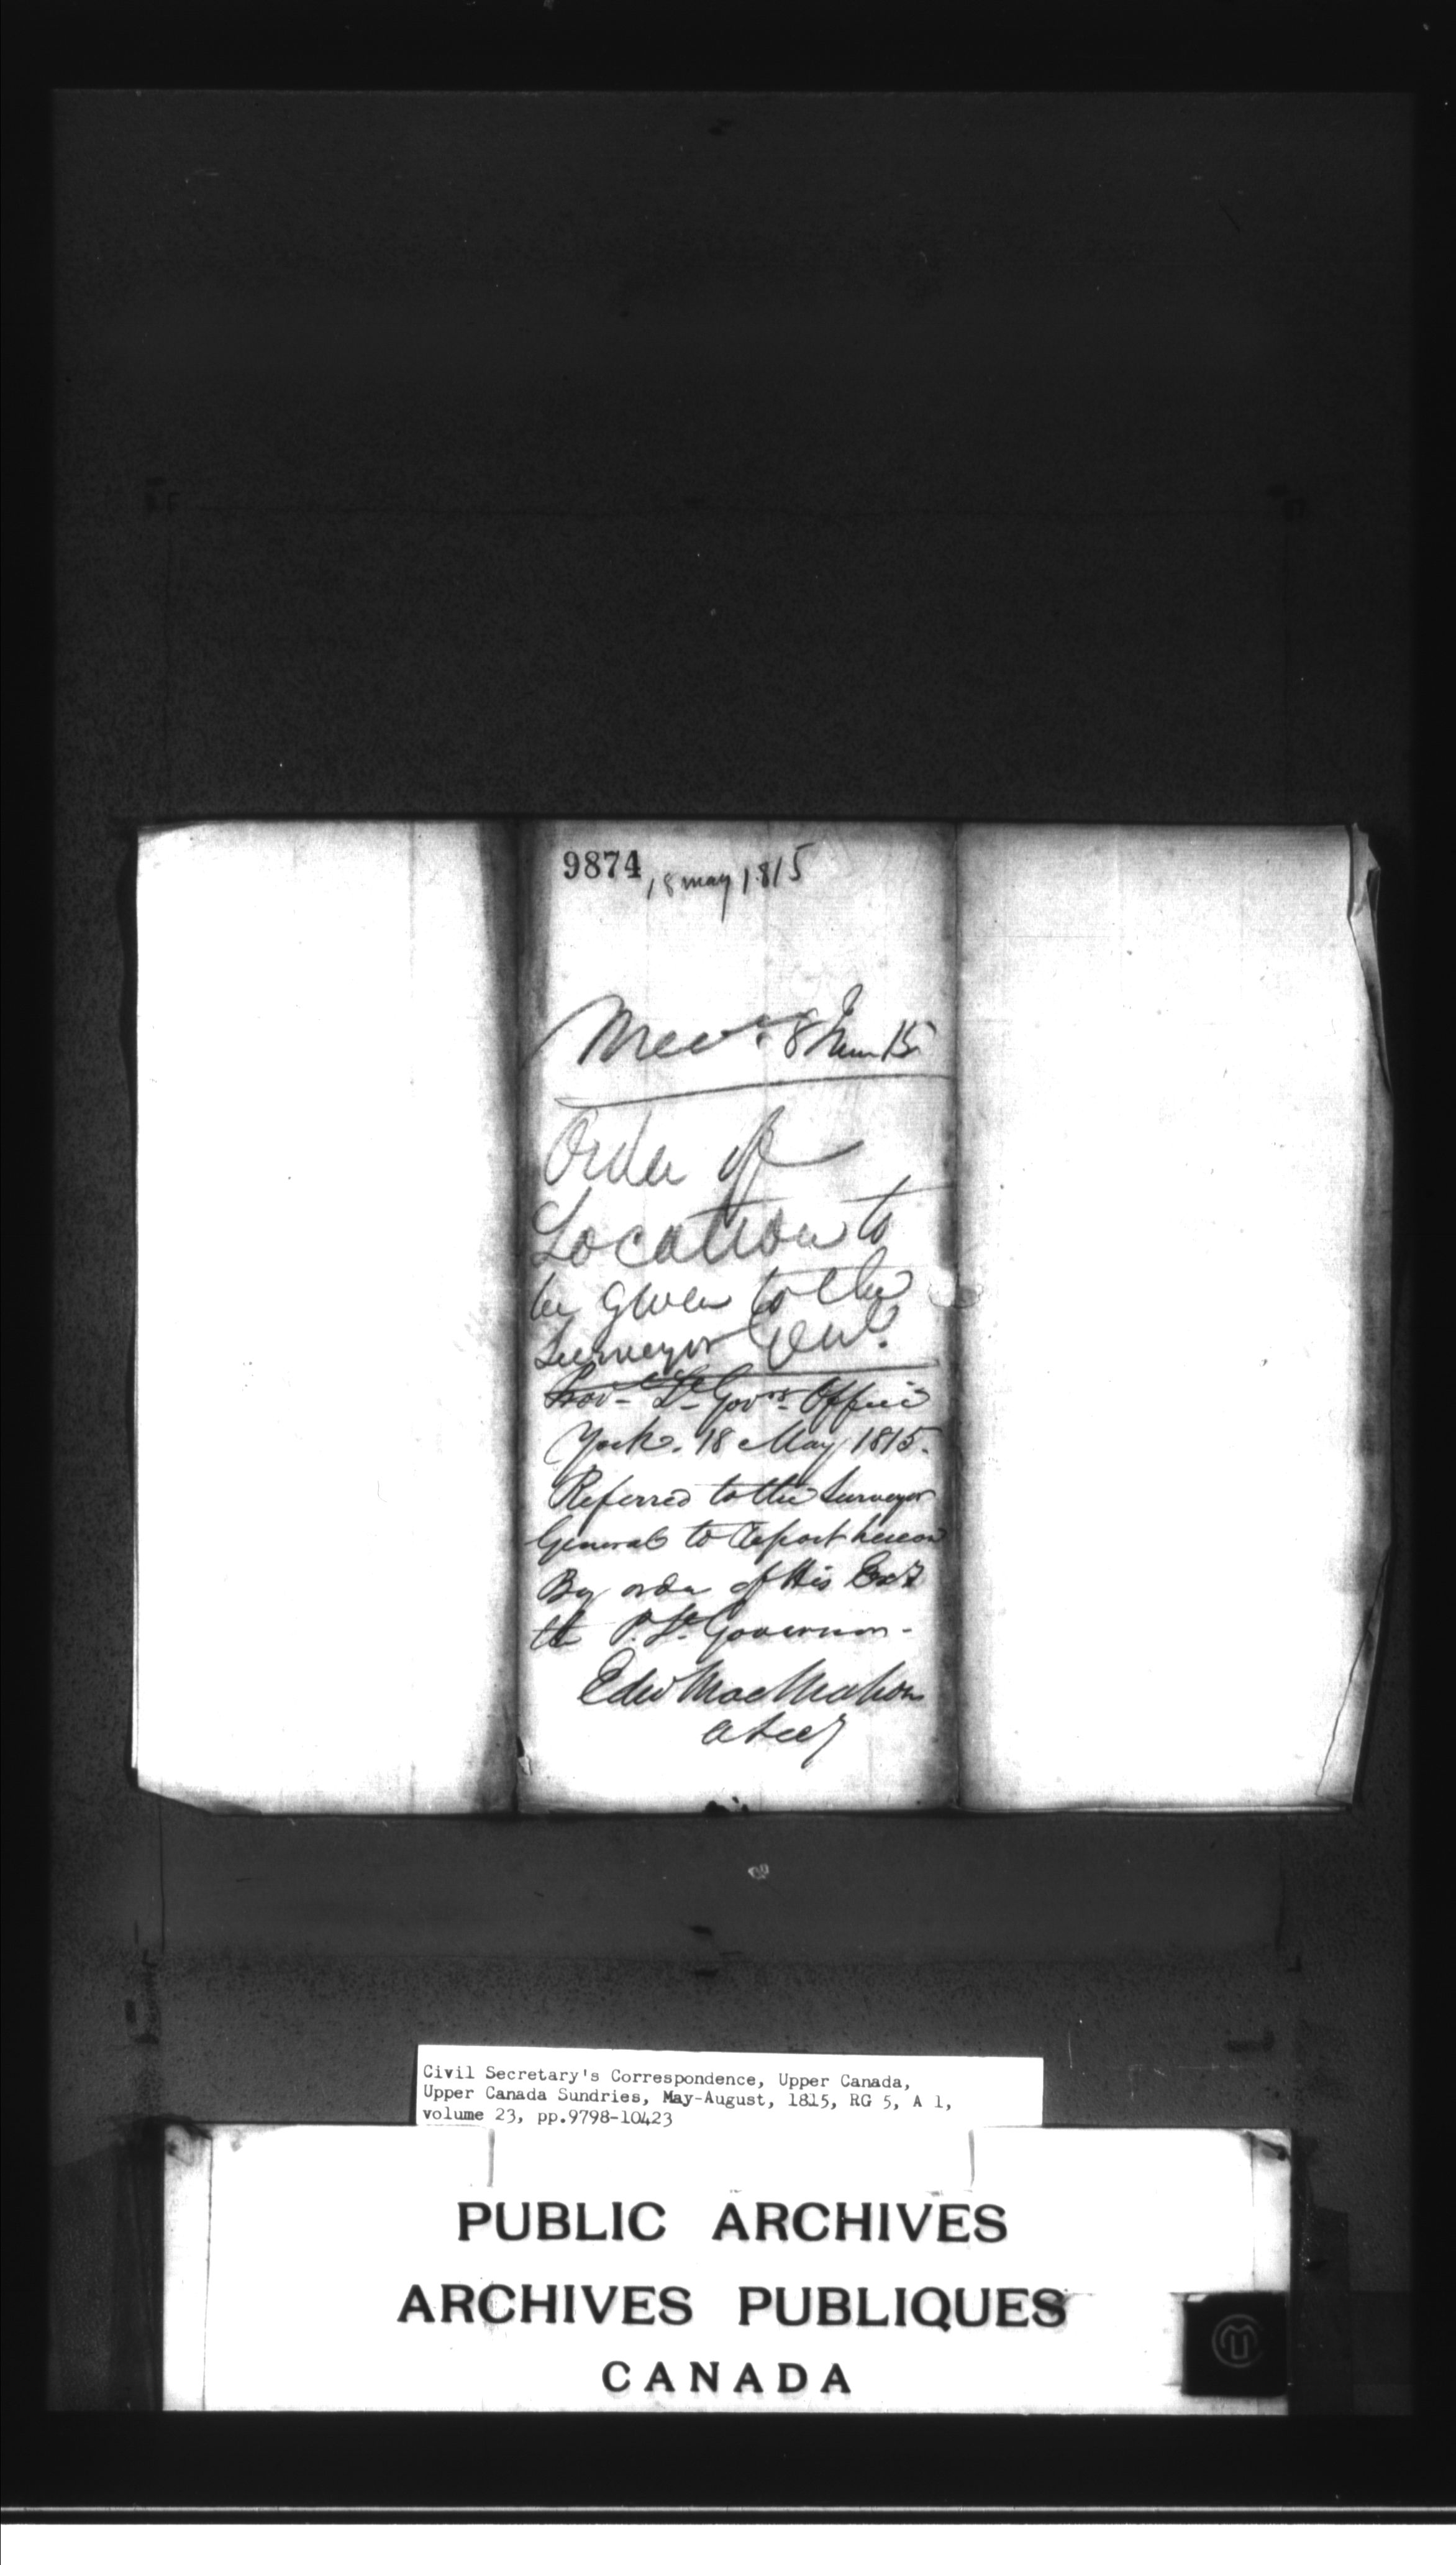 9874
18 may 1815
Order of
Location to
be given to the
Surveyor Genl.
Prov- Lt Govrs Office
York. 18 May 1815.
Referred to the Surveyor
General to Report hereon
By order of His Exy
the P. Lt Governor-
Edw MacMahon
a Secy
Civil Secretary's Correspondence, Upper Canada,
Upper Canada Sundries, May-August, 1815, RG 5, A 1,
volume 23, pp.9798-10423
PUBLIC ARCHIVES
ARCHIVES PUBLIQUES
CANADA